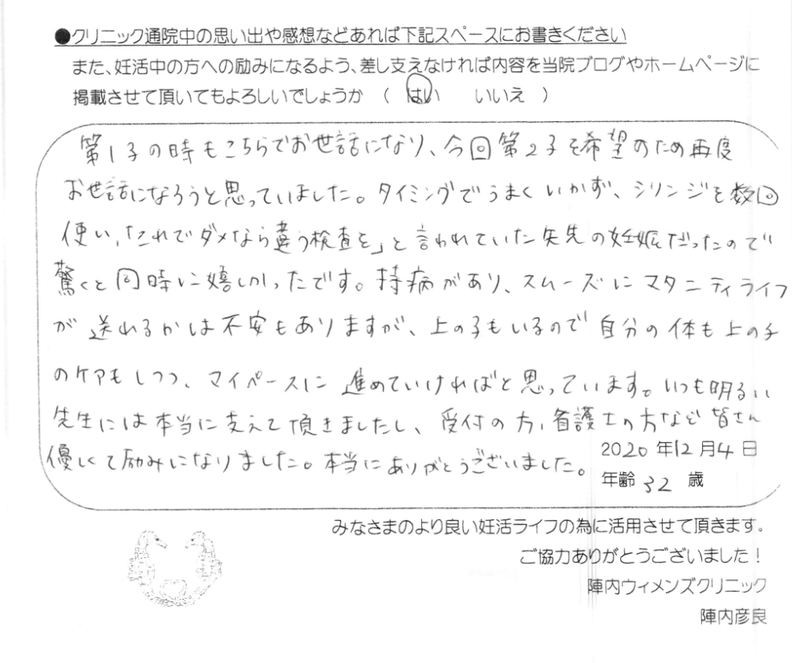 ●クリニック通院中の思い出や感想などあれば下記スペースにお書きください
また、妊活中の方への励みになるよう、差し支えなければ内容を当院ブログやホームページに
掲載させて頂いてもよろしいでしょうか （ はい いいえ ）
第1子の時もこちらでお世話になり、今回第2子を希望のため再度
お世話になろうと思っていました。タイミングでうまくいかず、シリンジを数回
使い、「これでダメなら違う検査を」と言われていた矢先の妊娠だったので
驚くと同時に嬉しかったです。持病があり、スムーズにマタニティライフ
が送れるかは不安もありますが、上の子もいるので自分の体も上の子
のケアもしつつ、マイペースに進めていければと思っています。いつも明るい
先生には本当に支えて頂きましたし、受付の方、看護士の方など皆さん
優しくて励みになりました。本当にありがとうございました。
2020年12月4日
年齢 32 歳
みなさまのより良い妊活ライフの為に活用させて頂きます。
ご協力ありがとうございました！
陣内ウィメンズクリニック
陣内彦良